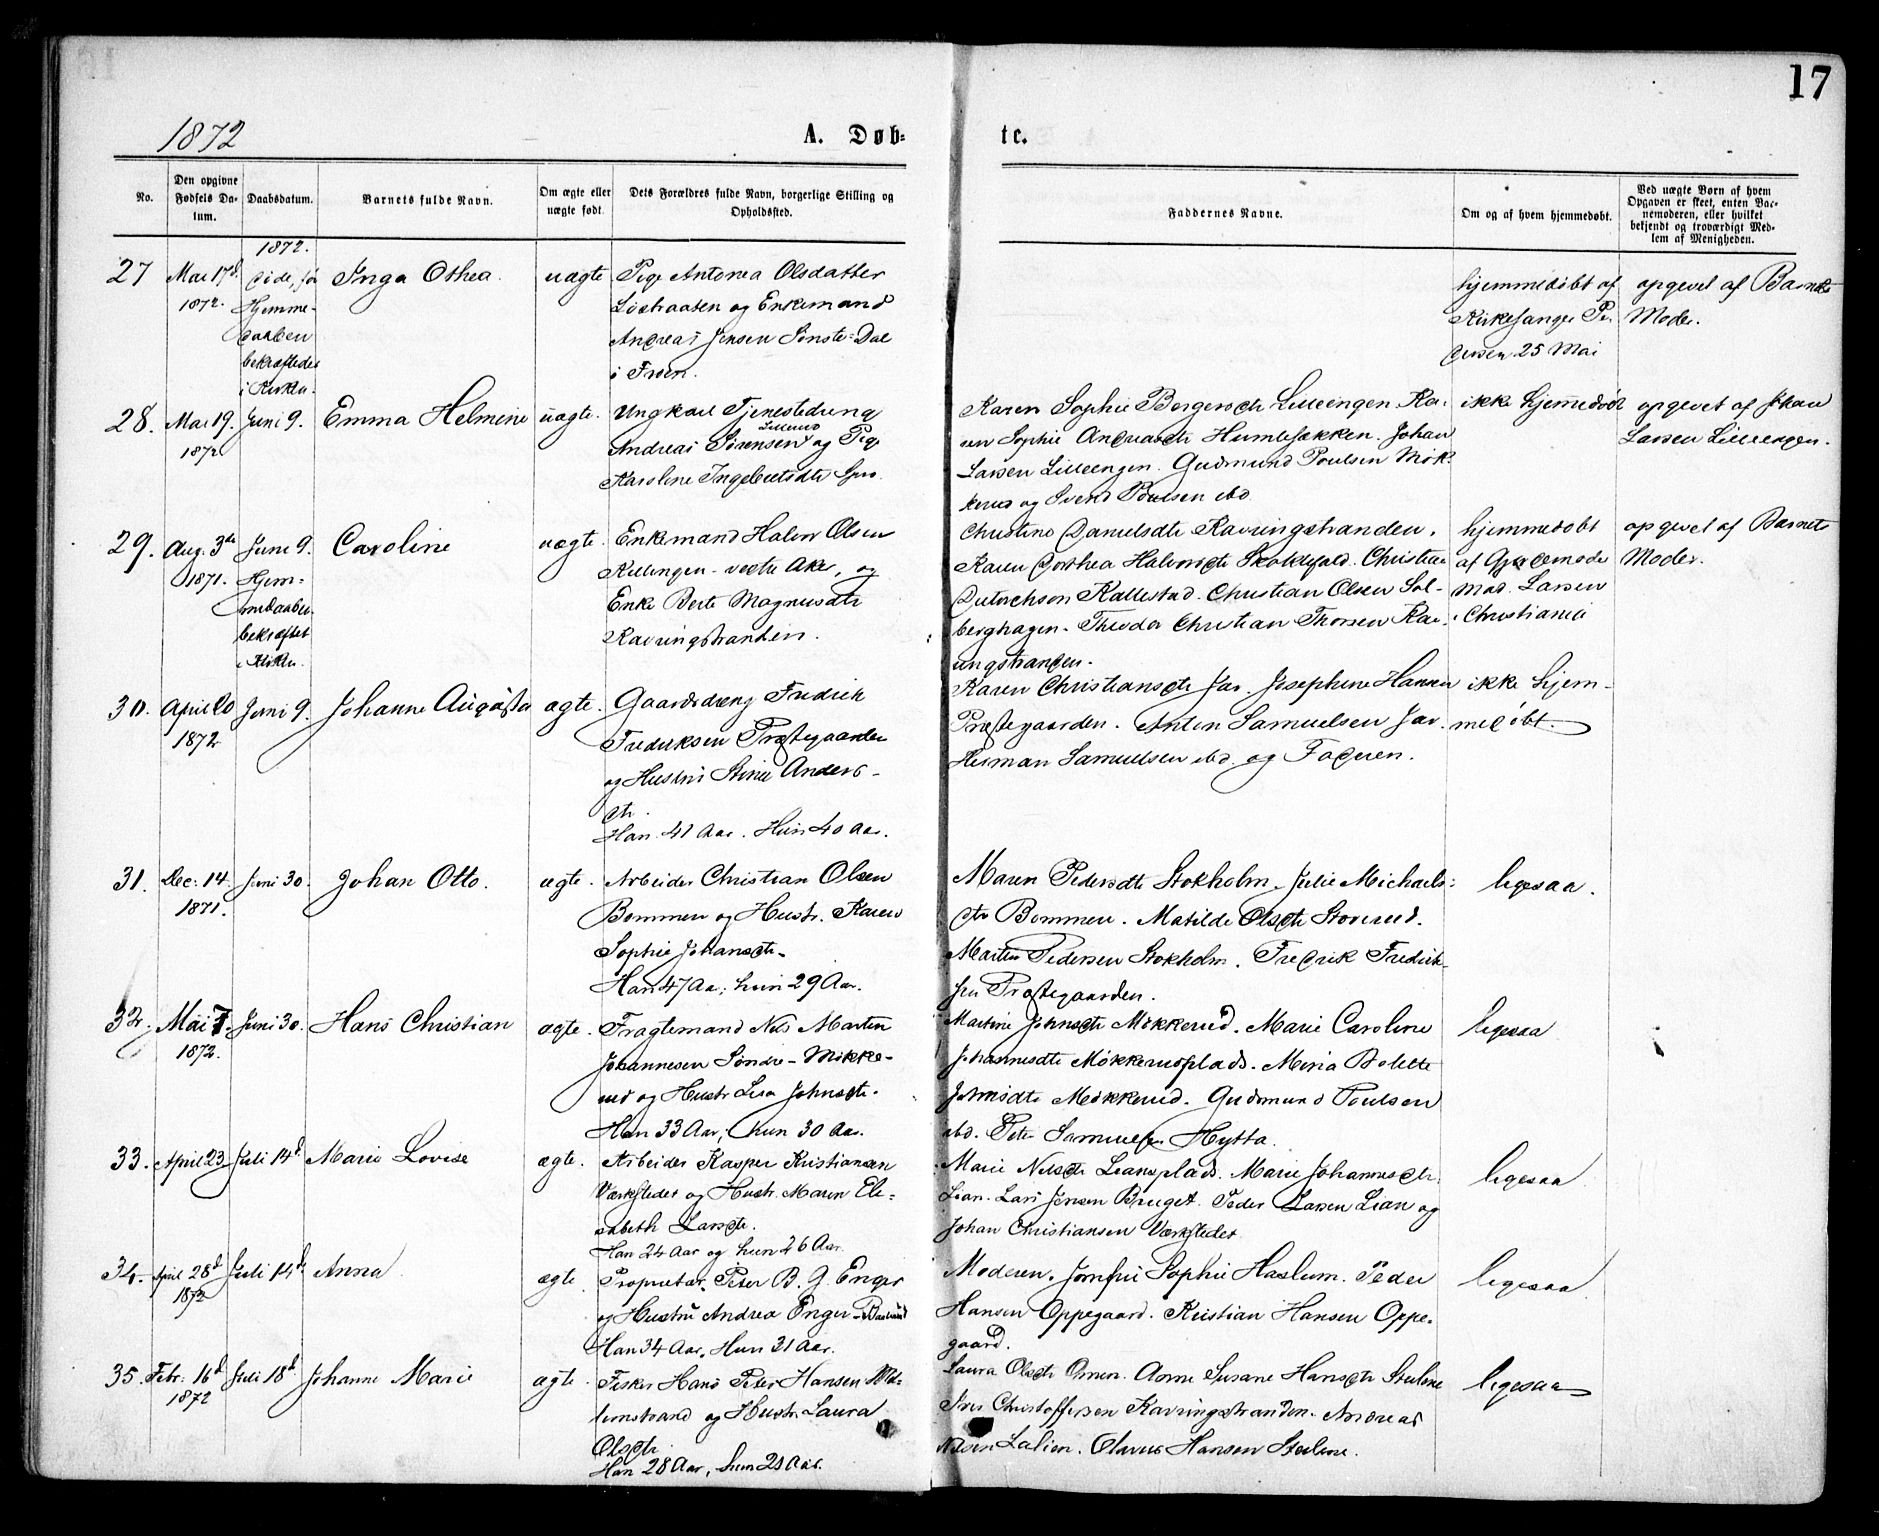 17
1872
A. Døb-
te.
No.
Den opgivne Fødsels Datum.
Daabsdatum.
Barnets fulde Navn.
Om ægte eller uægte født.
Dets Forældres fulde Navn, borgerlige Stilling og Opholdssted.
Faddernes Navne.
Om og af hvem hjemmedøbt.
Ved uægte Børn af hvem Opgaven er skeet, enten Barnemoderen, eller hvilket bekjendt og troværdigt Medlem af Menigheden.
1872.
27 Mai 17d Inga Othea. uægte Pige Antonea Olsdatter
1872.
Hjemme-
daaben
bekræftedes
i Kirken.
og Enkemand
Andreas Jensen Sønste-Dal
i Froen.
hjemmedøbt af
Kirkesanger Pe-
dersen 25 Mai
opgivet af Barnets
Moder.
28. Mai 19. Juni 9. Emma Helmine uægte. Ungkarl Tjenestedreng
1872
Andreas Sørensen og Pige
Karoline Ingebretsdtr
Karen Sophie Borgersdtr Lilleengen. Ka-
ren Sophie Humlesækken. Johan
Larsen Lilleengen. Gudmund Poulsen Møk-
kerud og Svend Poulsen ibd
ikke hjemmedøbt
opgivet af Johan
Larsen Lilleengen.
29. Aug. 3die Juni 9. Caroline uægte. Enkemand Halvor Olsen
1871.
Hjem-
medaaben
bekræftet
i Kirken.
vestre Aker, og
Enke Berte Magnusdtr
Ravningstranden.
Christine Danielsdtr Kavringstranden.
Karen Dorthea Halvorsdtr Christian
Kallestad. Christian Olsen Sol-
berghagen. Theodor Christian Thorsen Kav-
ringstranden.
hjemmedøbt
af Gjordemoder
Mad. Larsen
i Christiania
opgivet af Barnets
Moder.
30. April 20 Juni 9. Johanne Augusta ægte. Gaardsdreng Fredrik
1872
Frederiksen Præstegaarden
og Hustru Stine Anders-
dtr.
Han 41 Aar. Hun 40 Aar.
Karen Christiansdtr Jar. Josephine Hansen
Præstegaarden. Anton Samuelsen Jar.
Herman Samuelsen ibd. og Faderen.
ikke hjem-
medøbt.
31. Dec. 14. Juni 30. Johan Otto. ægte. Arbeider Christian Olsen
1871.
Bommen og Hustr. Karen
Sophie Johansdtr.
Han 47 Aar; hun 29 Aar.
Maren Pedersdtr Stokholm. Julie Michaels-
dtr Bommen. Matilde Olsdtr Stoverud.
Martin Pedersen Stokholm. Fredrik Fredrik-
sen Præstegaarden.
ligesaa.
32. Mai 7. Juni 30. Hans Christian ægte. Fragtemand Nils Martin
1872.
Johannesen Søndre-Møkke-
rud og Hustr. Lisa Johnsdtr.
Han 33 Aar; hun 30 Aar.
Martine Johnsdtr Møkkerud. Marie Caroline
Johannesdtr Møkkerudplads. Mina Bolette
Møkkerud. Gudmund Poulsen
ibd. Peter Samuelsen Hytta.
ligesaa
33. April 23 Juli 14d Marie Lovise ægte. Arbeider Kasper Kristiansen
Værkstedet og Hustr. Maren Eli-
sabeth Larsdtr.
Han 24 Aar og hun 26 Aar.
Marie Nilsdtr Liansplads. Marie Johannesdtr
Lian. Lars Jensen Bruget. Peder Larsen Lian og
Johan Christiansen Værkstedet
ligesaa
34. April 28d Juli 14d Anna ægte. Proprietær Peter B. G. Enger
1872
og Hustru Andrea Enger
Han 34 Aar, Hun 31 Aar.
Moderen. Jomfru Sophie Haslum. Peder
Hansen Oppegaard. Kristian Hansen Oppe-
gaard.
ligesaa
35. Febr. 16d Juli 18d Johanne Marie ægte. Fisker Hans Peter Hansen
1872
og Hustr. Laura
Olsdtr
Han 28 Aar, hun 21 Aar.
Laura Olsdtr Anne Susane Hansdtr Steilene
Christoffersen Kavringstranden. Andreas
Nilsen Olavus Hansen Steilene.
ligesaa